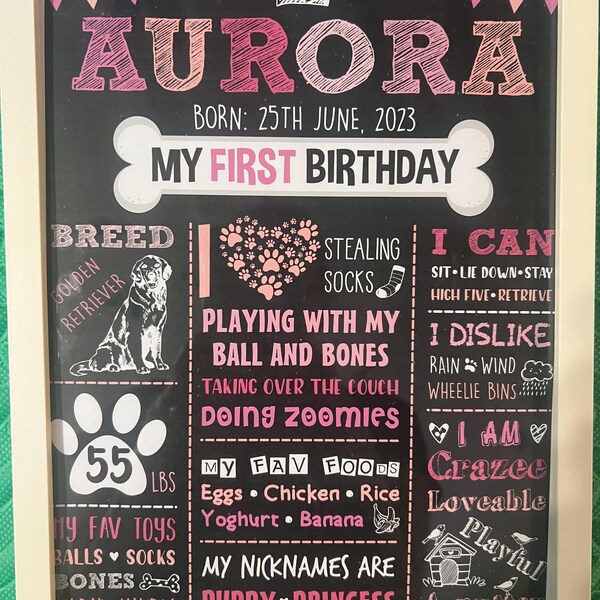 AURORA
BORN: 25TH JUNE, 2023
MY FIRST BIRTHDAY
BREED
GOLDEN
RETRIEVER
55
LBS
MY FAV TOYS
BALLS ♥ SOCKS
BONES
I
STEALING
SOCKS
PLAYING WITH MY
BALL AND BONES
TAKING OVER THE COUCH
DOING ZOOMIES
MY FAV FOODS
Eggs • Chicken • Rice
Yoghurt • Banana
MY NICKNAMES ARE
PUPPY • PRINCESS
I CAN
SIT • LIE DOWN • STAY
HIGH FIVE • RETRIEVE
I DISLIKE
RAIN WIND
WHEELIE BINS
I AM
Crazee
Loveable
Playful